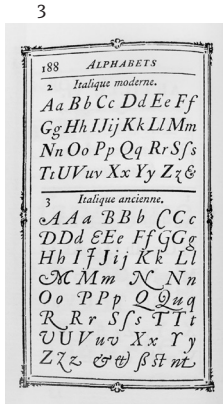 3
188 ALPHABETS
2 Italique moderne.
Aa Bb Cc Dd Ee Ff
Gg Hh IJij Kk Ll Mm
Nn Oo Pp Qq Rr Sſs
Tt UVuv Xx Yy Zz &
3 Italique ancienne.
AAa BBb CCc
DDd EEe Ff GGg
Hh IJJij Kk Ll
MMm NNn
Oo PPp QQuq
RRr Sſs TTt
VUVuv Xx Yy
ZZz & ß st nt